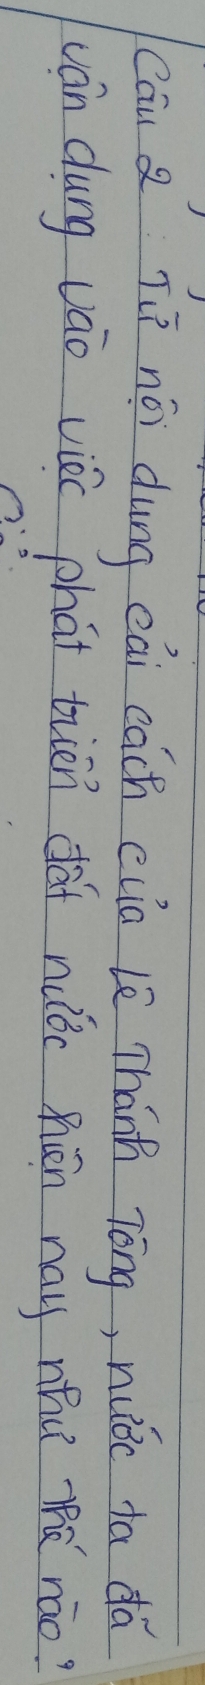 Câu 2: Từ nội dung cải cách của Lê Thánh Tông, nước ta đã
vận dụng vào việc phát triển đất nước hiện nay như thế nào?